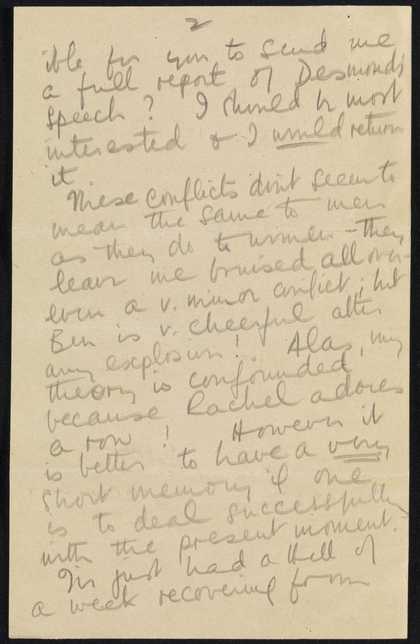 2
ible for you to send me
a full report of Desmond's
speech? I should be most
interested & I would return
it.
These conflicts don't seem to
mean the same to men
as they do to women – they
leave me bruised all over
even a v. minor conflict; but
Ben is v. cheerful after
any explosion! Alas, my
theory is confounded
because Rachel adores
a row! However it
is better to have a very
short memory if one
is to deal successfully
with the present moment.
I've just had a Hell of
a week recovering from